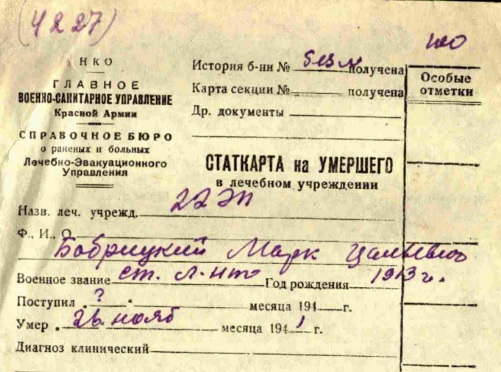 (4227)
НКО
ГЛАВНОЕ
ВОЕННО-САНИТАРНОЕ УПРАВЛЕНИЕ
Красной Армии
СПРАВОЧНОЕ БЮРО
о раненых и больных
Лечебно-Эвакуационного
Управления
История б-ни № без № получена
Карта секции № получена
Др. документы
Особые
отметки
СТАТКАРТА на УМЕРШЕГО
в лечебном учреждении
Назв. леч. учрежд. 22 ЭП
Ф., И., О.
Бобрицкий Марк
Военное звание ст. л-нт Год рождения 1913 г.
Поступил „ ? “ месяца 194 г.
Умер „ 26 нояб месяца 1941 г.
Диагноз клинический